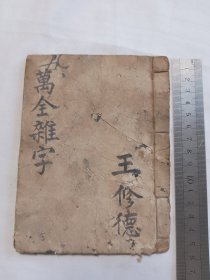 萬全雜字
王修德
10